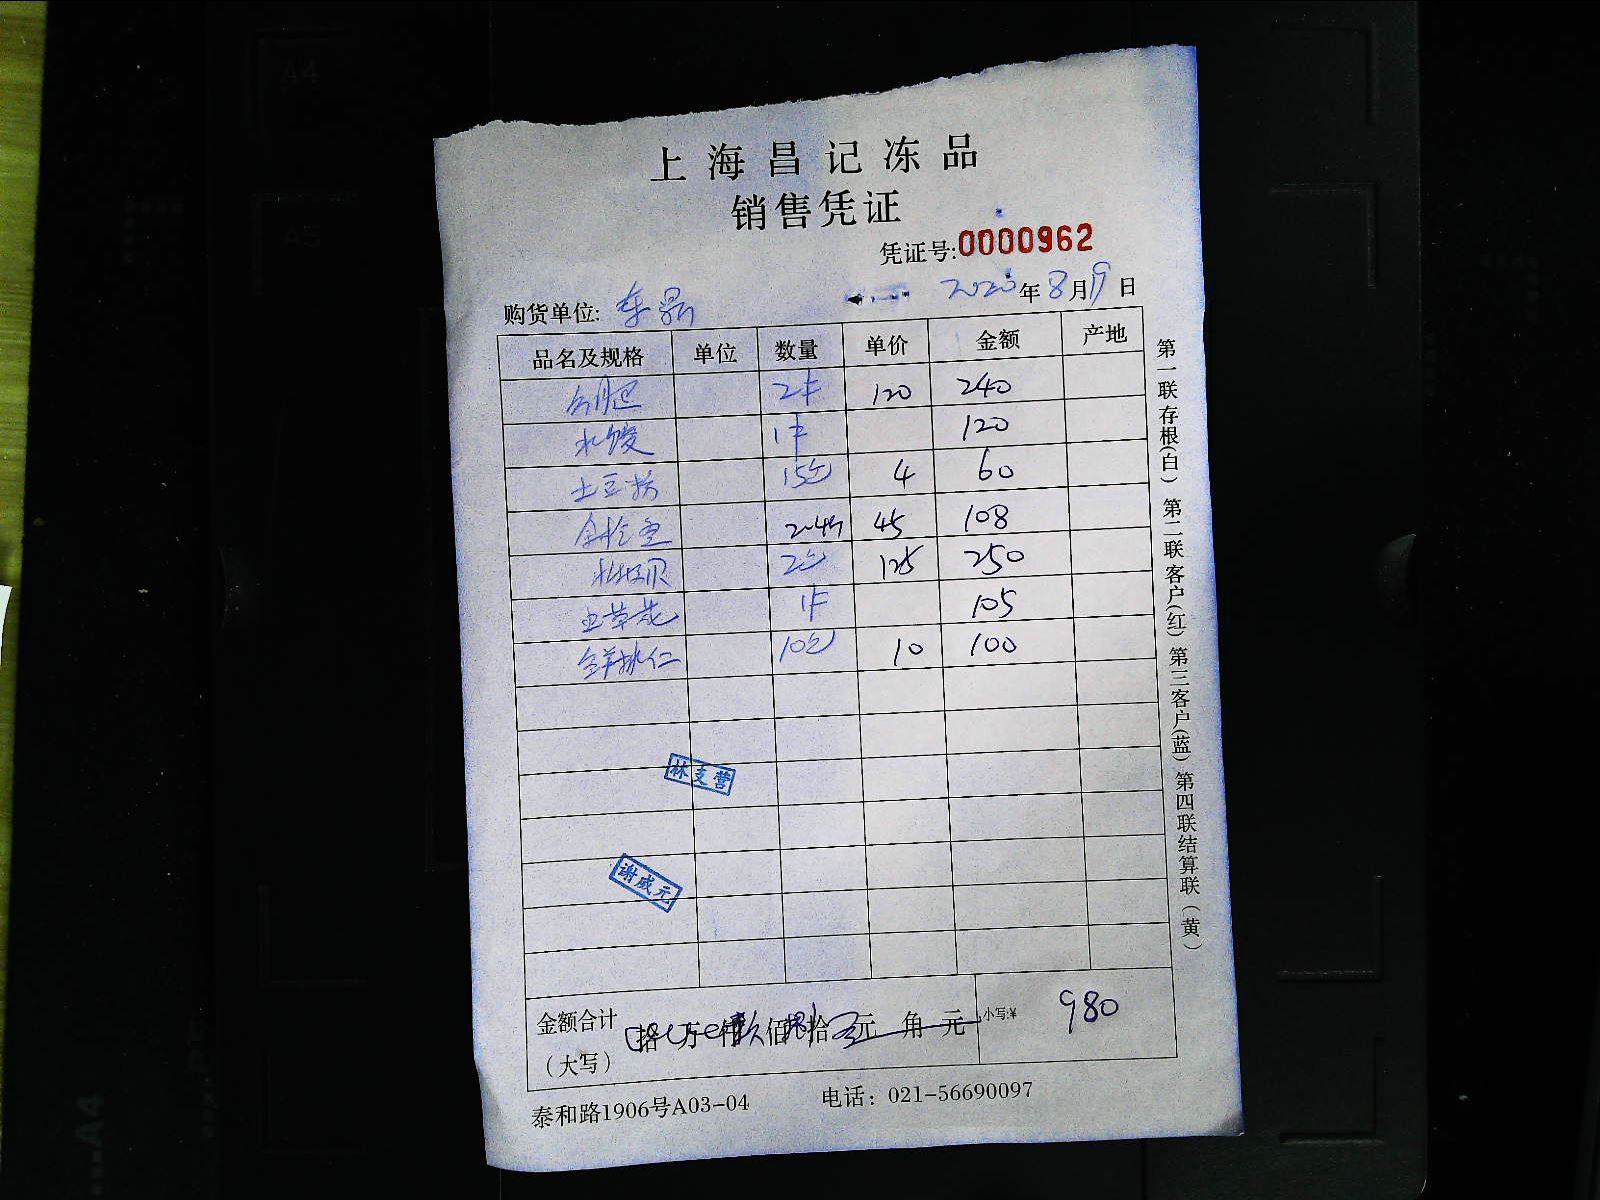 上海昌记冻品
销售凭证
凭证号:0000962
购货单位: 2020年8月19日
品名及规格 单位 数量 单价 金额 产地
2件 120 240
1件 120
土豆粉 15包 4 60
45 108
2包 125 250
虫草花 1件 105
10包 10 100
林支营
谢成元
金额合计 拾 万 仟 玖佰捌拾 元 角 元 小写:¥ 980
（大写）
泰和路1906号A03-04 电话：021-56690097
第一联存根(白) 第二联客户(红) 第三客户(蓝) 第四联结算联(黄)
A4
A5
A4